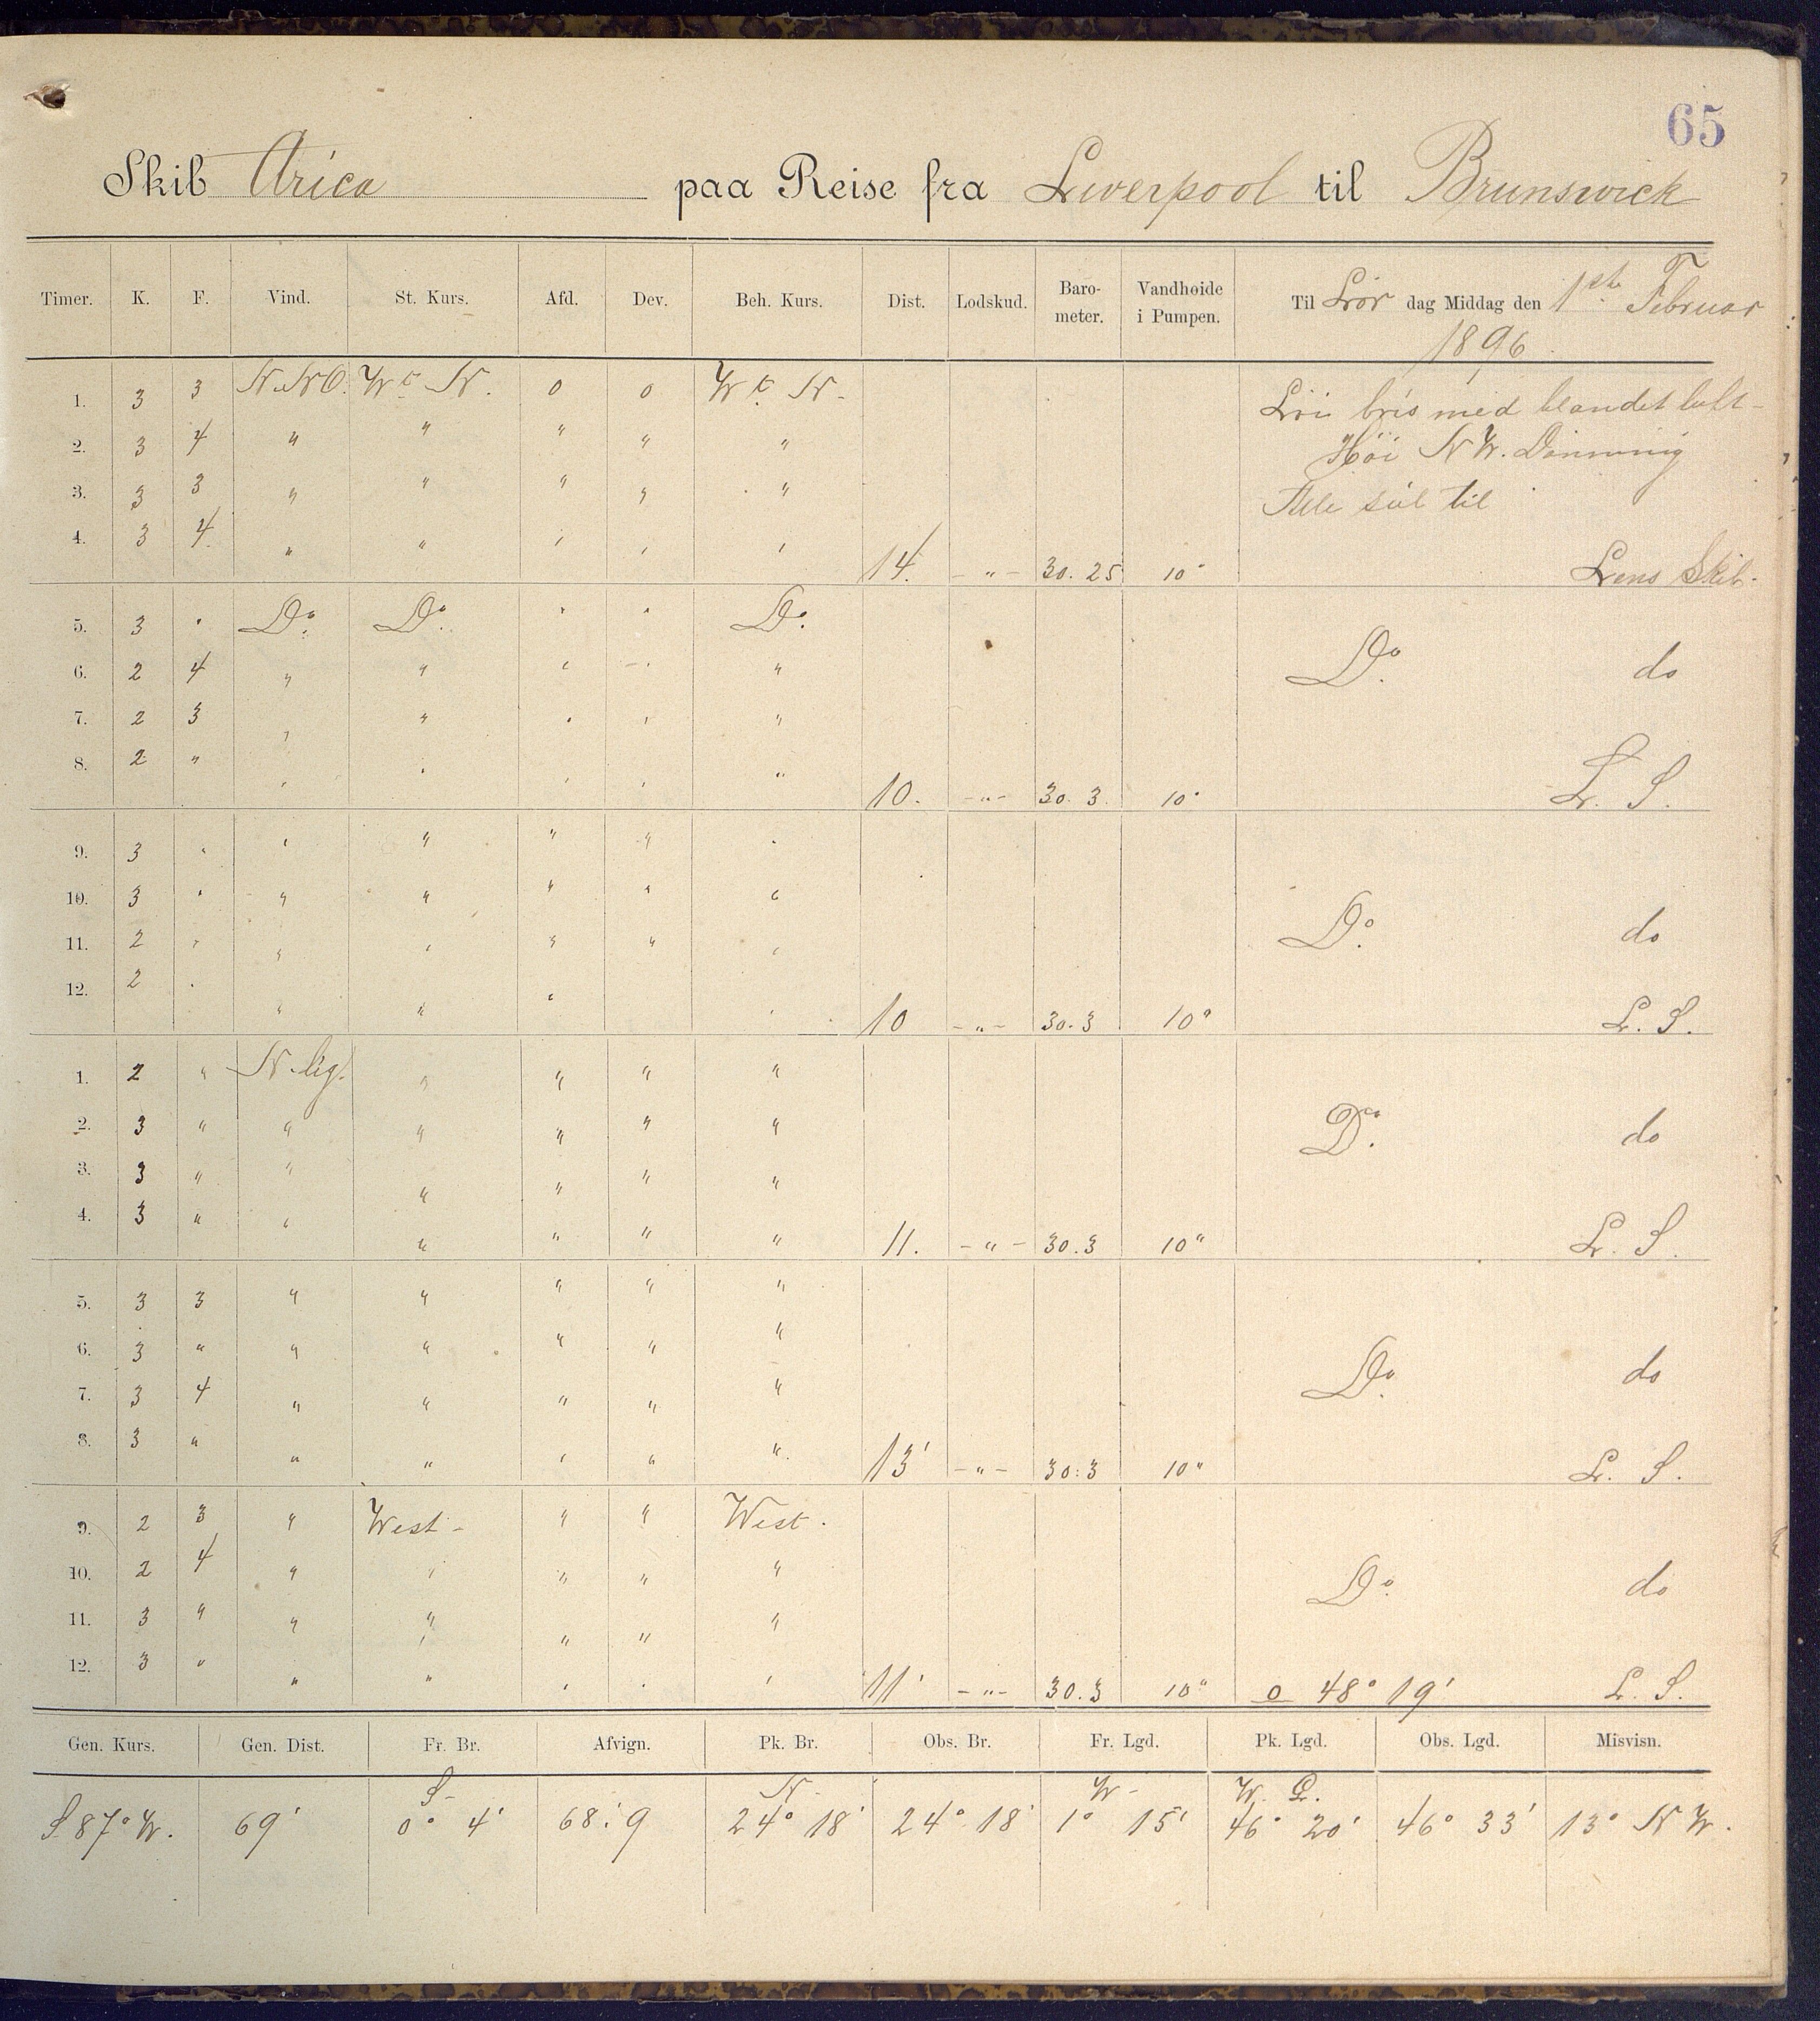 65
Skib Arica paa Reise fra Liverpool til Brunswick
Timer. K. F. Vind. St. Kurs. Afd. Dev. Beh. Kurs. Dist. Lodskud. Barometer. Vandhøide i Pumpen. Til Lør dag Middag den 1ste Februar 1896
1. 3 3 N.NO. W t. N. 0 0 W t. N. bris med blandet luft
2. 3 4 " " " " " Høi N W. Dønning
3. 3 3 " " " " " Alle seil til
4. 3 4 " " " " " 14. -"- 30.25 10" Lens Skib.
5. 3 " Do. Do. " " Do.
6. 2 4 " " " " " Do. do
7. 2 3 " " " " "
8. 2 " " " " " " 10. -"- 30.3 10" L. S.
9. 3 " " " " " "
10. 3 " " " " " " Do. do
11. 2 " " " " " "
12. 2 " " " " " 10 -"- 30.3 10" L. S.
1. 2 " N.lig. " " " "
2. 3 " " " " " " Do. do
3. 3 " " " " " "
4. 3 " " " " " " 11. -"- 30.3 10" L. S.
5. 3 3 " " " " "
6. 3 " " " " " " Do. do
7. 3 4 " " " " "
8. 3 " " " " " " 13' -"- 30.3 10" L. S.
9. 2 3 " West " " West.
10. 2 4 " " " " " Do. do
11. 3 " " " " " "
12. 3 " " " " " " 11' -"- 30.3 10" 48° 19' L. S.
Gen. Kurs. Gen. Dist. Fr. Br. Afvign. Pk. Br. Obs. Br. Fr. Lgd. Pk. Lgd. Obs. Lgd. Misvisn.
S N W W.
S 87° W. 69' 0° 4' 68.'9 24° 18' 24° 18' 1° 15' 46° 20' 46° 33' 13° N W.